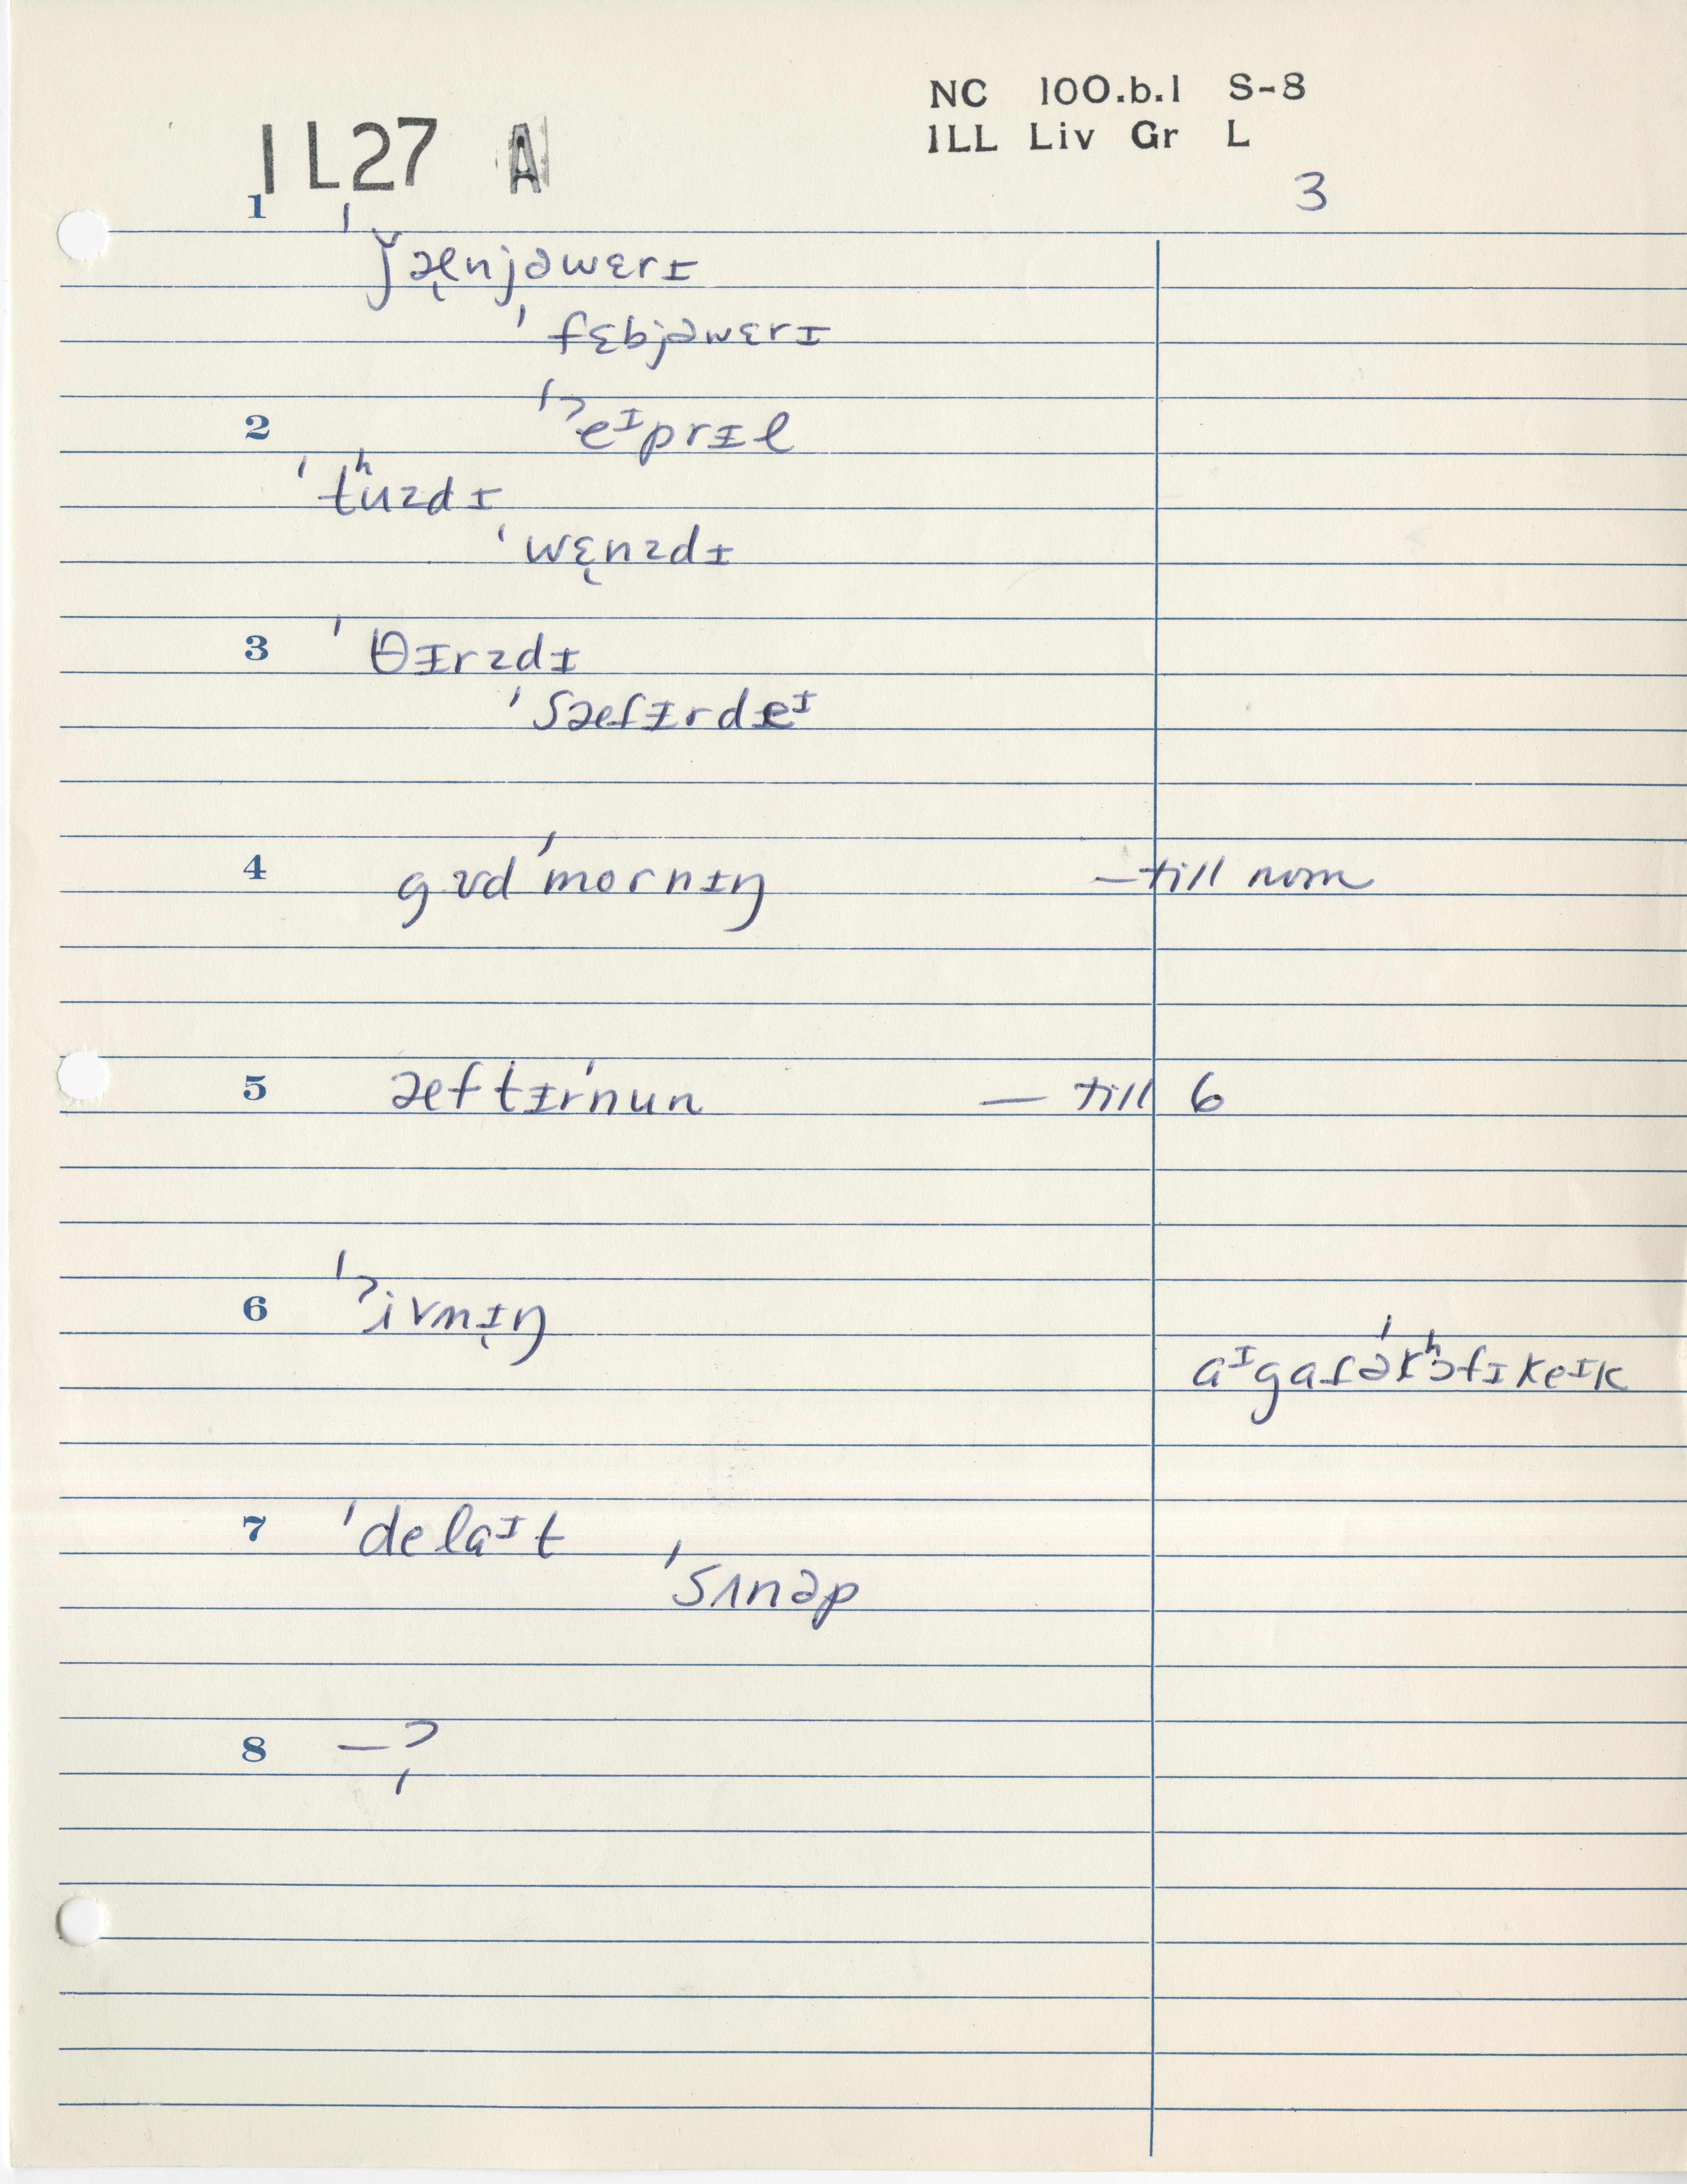 NC 100.b.1 S-8
1L27 A
ILL Liv Gr L
3
1
ˈǰæ̨njəwɛrɪ
ˈfɛbjəwɛrɪ
2 ˈʔeᶦprɪl
ˈtʰuzdɪ
ˈwɛ̨nzdɪ
3 ˈθɪrzdɪ
ˈsæɾɪrdeᶦ
4 gʊdˈmornɪŋ —till noon
5 æftɪrˈnun — till 6
6 ˈʔivnɪ̨ŋ
aᶦgaɾəˈkʰɔfɪkeɪk
7 ˈdelaᶦt
ˈsʌnəp
8 —?